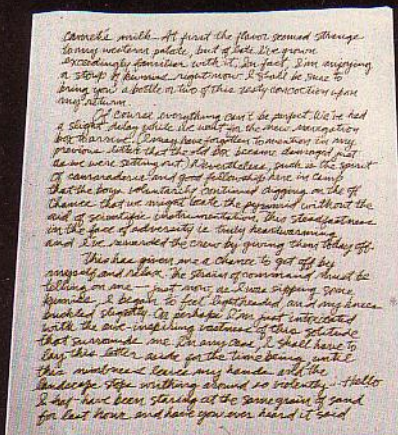 camel's milk. At first the flavor seemed strange
to my western palate, but of late I've grown
exceedingly familiar with it. In fact, I'm enjoying
a stoup of kumiss right now. I shall be sure to
bring you a bottle or two of this zesty concoction upon
my return.
Of course everything can't be perfect. We've had
a slight delay while we wait for the new navigation
box to arrive. (I may have forgotten to mention in my
previous letter that the old box became damaged just
as we were setting out.) Nevertheless, such is the spirit
of camaraderie and good fellowship here in camp
that the boys voluntarily continued digging on the off
chance that we might locate the pyramid without the
aid of scientific instrumentation. This steadfastness
in the face of adversity is truly heartwarming
and I've rewarded the crew by giving them today off.
This has given me a chance to get off by
myself and relax. The strain of command must be
telling on me — just now, as I was sipping some
kumiss, I began to feel lightheaded and my knees
buckled slightly. Or perhaps I'm just intoxicated
with the awe-inspiring vastness of this solitude
that surrounds me. In any case I shall have to
lay this letter aside for the time being until
this numbness leaves my hands and the
landscape stops writhing around so violently. Hello
I but have been staring at the same grain of sand
for last hour and have you ever heard it said